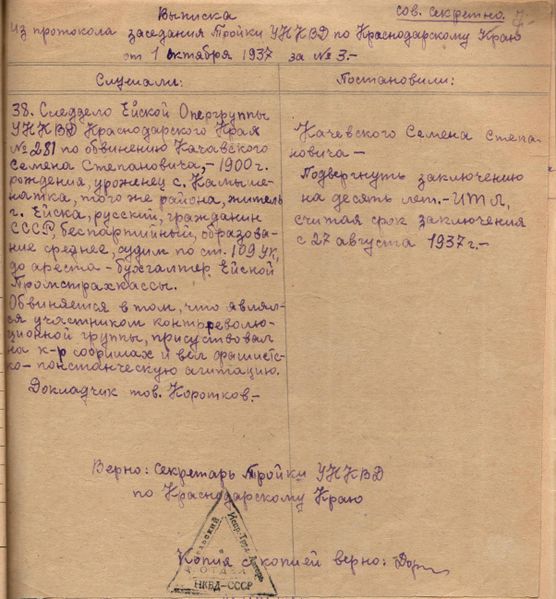 Выписка
сов. секретно.
из протокола заседания тройки УНКВД по Краснодарскому Краю
от 1 октября 1937 за № 3.-
Слушали:
38. Следдело Ейской Опергруппы
УНКВД Краснодарского Края
№ 281 по обвинению Качавского
Семена Степановича,- 1900 г.
рождения, уроженец с. Камыше-
ватка, того же района, житель
г. Ейска, русский, гражданин
СССР, беспартийный, образова-
ние среднее, судим по ст. 109 УК,
до ареста - бухгалтер Ейской
Промстрахкассы.
Обвиняется в том, что являл-
ся участником контрреволю-
ционной группы, присуствовал
на к-р сборищах и вел фашистс-
ко-повстанческую агитацию.
Докладчик тов. Коротков.-
Постановили:
Качевского Семена Степа-
новича -
Подвергнуть заключению
на десять лет.- ИТЛ,
считая срок заключения
с 27 августа 1937 г.-
Верно: Секретарь Тройки УНКВД
по Краснодарскому Краю
Копия с копией верно:
Испр.-Труд. Лагерь
ОТДЕЛ
НКВД-СССР